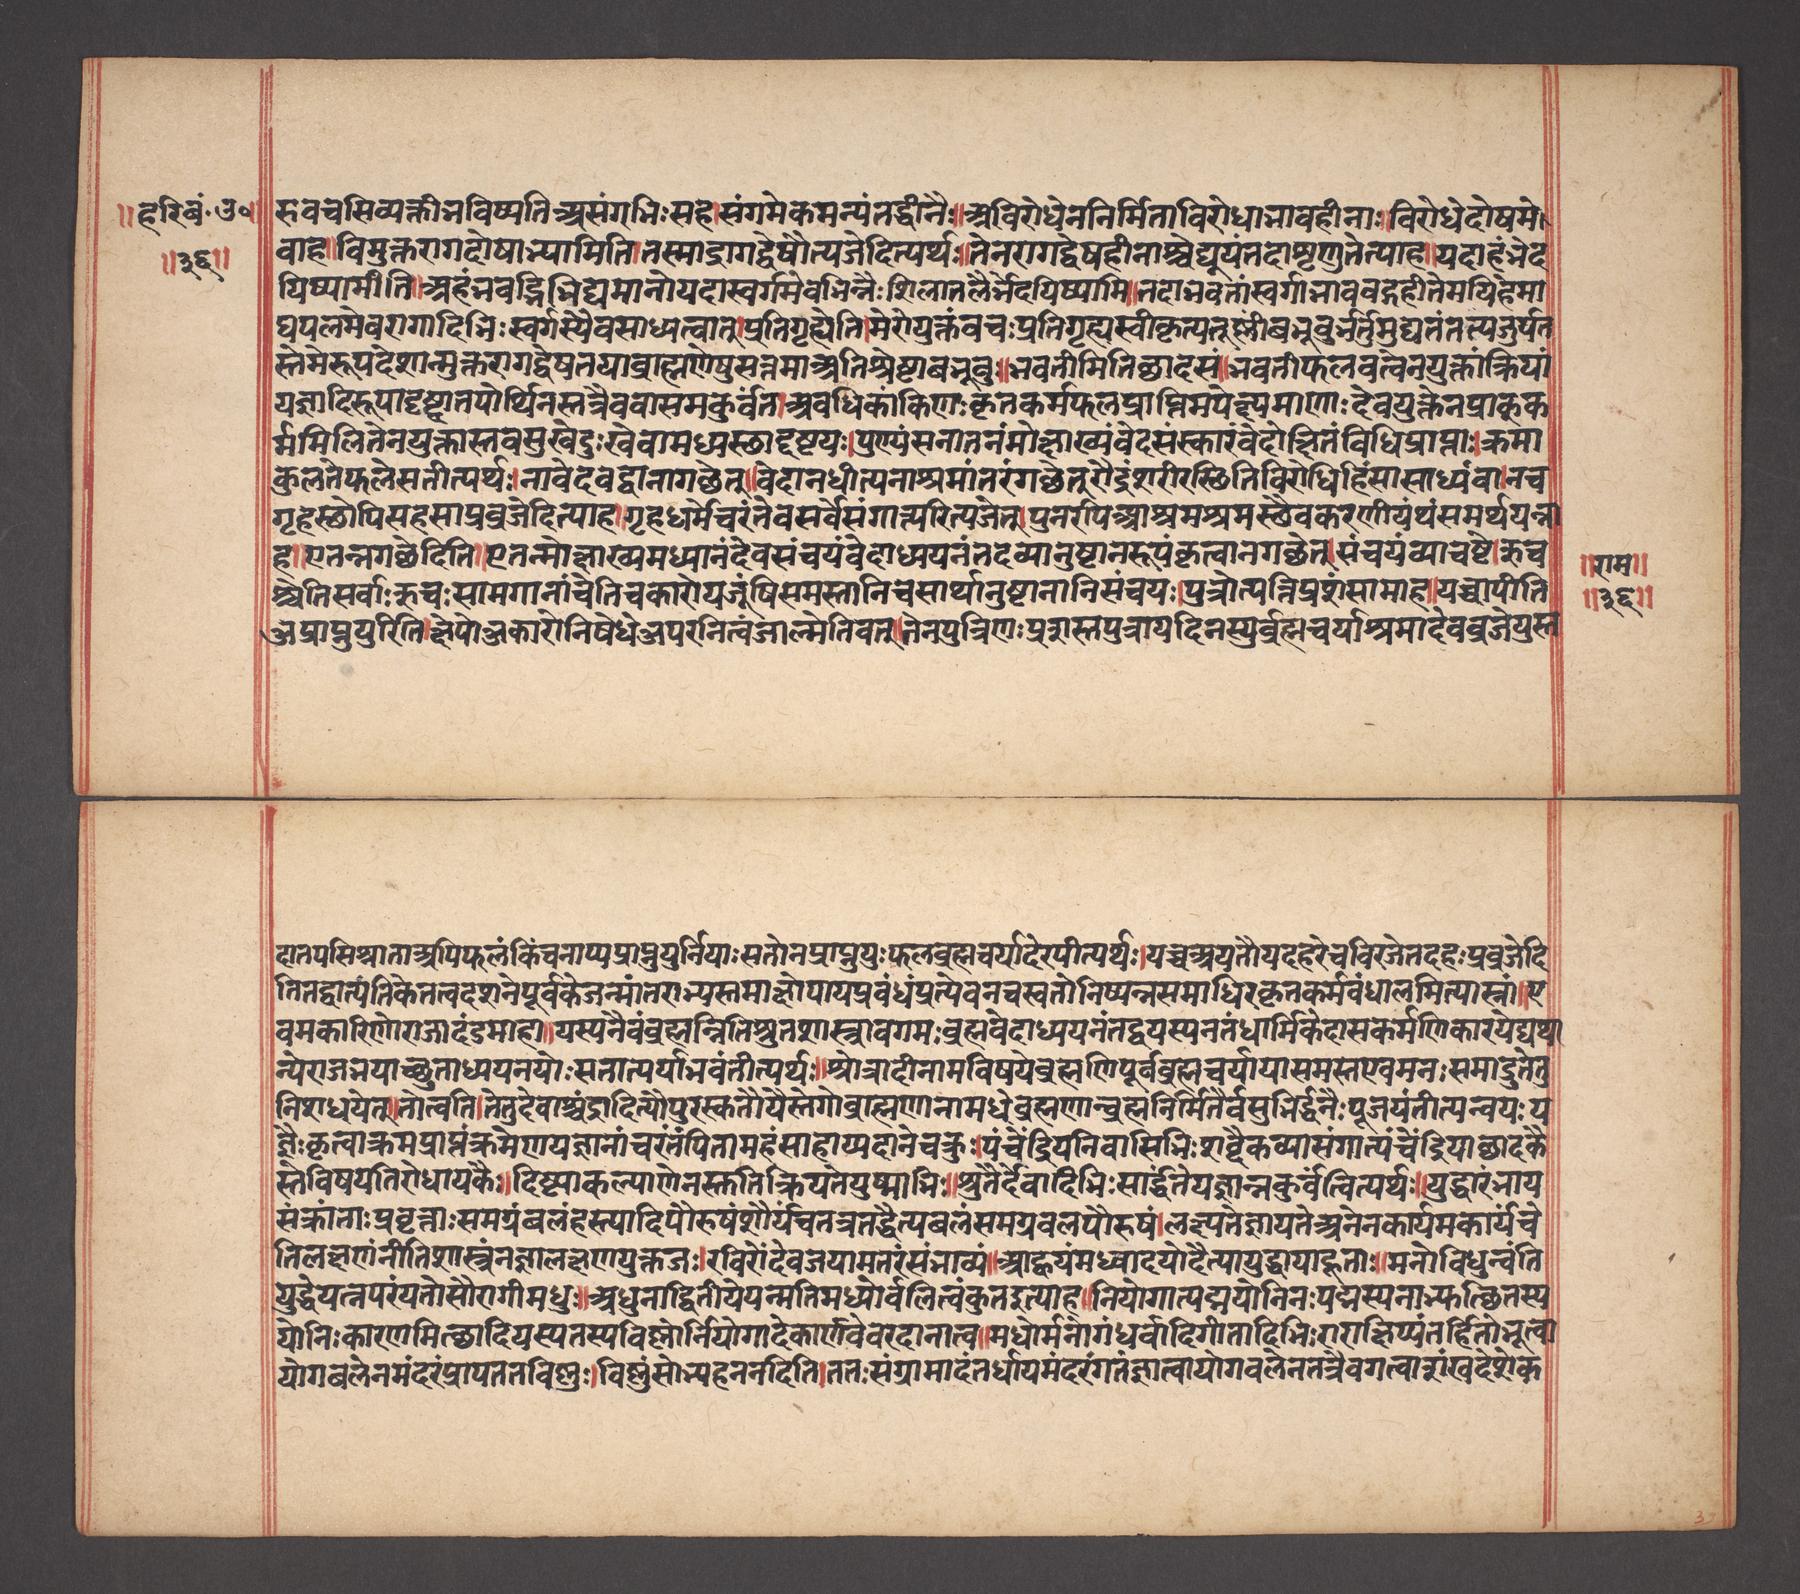 ॥हरिवं॰उ०॥
॥३६॥
हवचसिव्यक्तीभविष्यतिअसंगभिःसह।संगमेकमन्यंतद्धीनैः॥अविरोधेननिर्मिताविरोधाभावहीनाः।विरोधेदोषमे
वाह॥विमुक्तरागदोषाभ्यामिति।तस्माद्रागद्वेषौत्यजेदित्यर्थः॥तेनरागद्वेषहीनाश्चेद्यूयंतदाशृणुतेत्याह॥यदाहंभेद
यिष्यामीति॥अहंभवद्भिर्भिद्यमानोयदास्वर्गमेवभिन्नैःशिलातलैर्भेदयिष्यामि॥तदाभवतांस्वर्गाभाववद्गहीतेमयिहमा
घपलमेवरागादिभिःस्वर्गस्यैवसाध्यत्वात्।प्रतिगृह्येति।मेरोयुक्तंवचःप्रतिगृह्यस्वीकृत्यतूष्णींबभूवुर्भर्तुमुद्यतंतत्यजुर्यत
स्तेमेरूपदेशान्मुक्तरागद्वेषतयाब्राह्मणेषुसन्नमाअतिश्रेष्टाबभूवु॥भवतीमितिछादसं॥भवतीफलवत्वेनयुक्तांक्रियां
यज्ञादिरूपादृष्ट्वातपोर्थिनस्तत्रैववासमकुर्वत।अवधिकांकिणःकृतकर्मफलप्राप्तिमपेक्ष्यमाणाःदेवयुक्तेनप्राकृक
र्ममिलितेनयुक्तास्तवसुखेदुःखेवामध्यस्छादृष्टयः।पुण्यंसनातनंमोक्षाख्यंवेदसंस्कारंवेदोक्तितंविधिप्राप्ताः।क्रमा
कुलतैफलेसतीत्यर्थः।नावेदवद्वोनागछेत्॥वेदानधीत्यनाश्रमांतरंगछेत्तुरौद्रंशरीरस्छितिविरोधिहिंसासाध्यंवा।नच
गृहस्छोपिसहसाप्रव्रजेदित्याह।गृहधर्मंचरंतेवसर्वसंगात्परित्यजेत्।पुनरपिआश्रमश्रमस्छैवकरणीयंथंसमर्थयन्ना
ह॥एतन्नगछेदिति॥एतन्मोक्षाख्यमध्यानंदेवसंचयंवेदाध्ययनंतदव्यानुष्टानरूपंकृत्वानगछेत्।संचयंव्याचष्टे।ऋच
श्चेतिसर्वाःऋचःसामगानांचेतिचकारोयजूंषिसमस्तानिचसार्थानुष्टानानिसंचयः।पुत्रोत्पत्तिप्रशंसामाह॥यच्चापीति
अप्राप्नुयुरिति।क्षेपोञकारोनिषेधेअपरनित्वंजाल्मेतिवत्॥तेनपुत्रिणःपुत्रास्तपुत्रायदिनस्युर्ब्रह्मचर्याश्रमादेवव्रजेयुस्त
॥राम॥
॥३६॥
दातपसिश्राताअपिफलंकिंचनाप्यप्राप्नुयुर्निर्याःसतोनप्राप्नुयुःफलब्रह्मचर्यादेरपीत्यर्थः।यच्चअयतौयदहरेचविरजेतदहःप्रव्रजेदि
तितद्वात्यंतिकेतत्वदर्शनेपूर्वकैजन्मांतराभ्यस्तमाक्षोपायप्रबंधंप्रत्येवनचस्वतोनिष्पन्नसमाधिरकृतकर्मबंधालमित्यास्तां॥ए
वमकारिणोराजादंडमाहा॥यस्यनैवंब्रह्मन्नितिश्रुतशास्त्रावगमःब्रह्मवेदाध्ययनंतद्वयस्यनतंधार्मिकंदासकर्मणिकारयेद्यथा
न्येराजभयाच्छ्रुताध्ययनयोःसतात्पर्याभवंतीत्यर्थः॥श्रोत्रादीनामविषयेब्रह्मणिपूर्वब्रह्मचर्यायासमस्तएवमनःसमाद्रुतेतु
निशधयेत्॥तोत्वति।तेतुदेवाश्चंद्रादित्यौपुरस्कृतौयैस्तेगोब्राह्मणानामधेब्रह्मणान्ब्रह्मनिर्मितैर्वसुभिर्द्धनैःपूजयंतीत्यन्वयःय
ज्ञैःकृत्वाक्रमप्राप्तंक्रमेणयज्ञानांचरंतंपितामहंसाहाय्यदानेचक्रुः।पंचेंद्रियनिवासिभिःशब्दैकव्यासंगात्पंचेंद्रियाछादकै
स्तेविषयतिरोधायकैः॥दिष्ट्याकल्याणेनस्कृतिक्रियतेयुष्माभिः॥श्रुतैर्देवादिभिःसार्द्धंतेयज्ञान्नकुर्वंत्वित्यर्थः॥युद्धारंभाय
संक्रांताःप्रवृत्ताःसमग्रंबलंहस्त्यादिपौरुषंशौर्यंचतत्रतद्वैत्यबलंसमग्रबलपौरुषं।लक्ष्यतेज्ञायतेअनेनकार्यमकार्यंचे
तिलक्षणंनीतिशास्त्रंनज्ञालक्षणयुक्तजः।रविरोदेवजयामतरंसंभाव्यं॥आह्वयंमध्वादयोदैत्यायुद्धायाहूताः॥मनोविधुन्वंति
युद्धेयत्नपरंयतोसौरागीमधुः॥अधुनाद्वितीयेयन्मतिमध्योर्वलित्वंकुतइत्याह॥नियोगात्पद्मयोनिनःपद्मस्यनाभ्यत्छितस्य
योनिःकारणमित्छादियस्यतस्यविष्णोर्नियोगादेकार्णवेवरदानात्व॥मधोर्मनोगंधर्वादिगीतादिभिःशराक्षिप्यंतर्हितोभूत्वा
योगबलेनमंदरंप्रापततविष्णुः।विष्णुंसोभ्यहननदिति।ततःसंग्रामादंतर्धायमंदरंगतंज्ञात्वायोगबलेनतत्रैवगत्वाशंखदेशेक